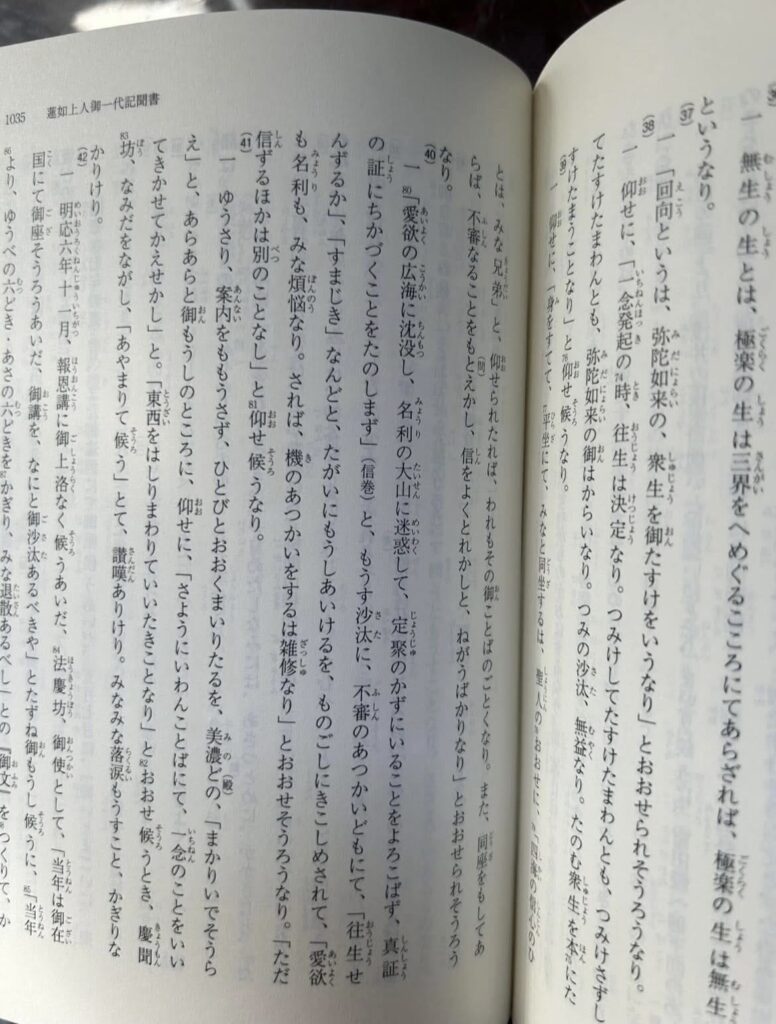 一 無生の生とは、極楽の生は三界をへめぐるこころにてあらざれば、極楽の生は無生
というなり。
(37)
一 「回向というは、弥陀如来の、衆生を御たすけをいうなり」とおおせられそうろうなり。
(38)
一 仰せに、「一念発起の74時、往生は決定なり。つみけしてたすけたまわんとも、つみけさずし
てたすけたまわんとも、弥陀如来の御はからいなり。つみの沙汰、無益なり。たのむ衆生を本にた
すけたまうことなり」と76仰せ候うなり。
(39)
一 仰せに、「身をすてて、77平坐にて、みなと同坐するは、聖人のおおせに、四海の信心のひ
とは、みな兄弟」と、仰せられたれば、われもその御ことばのごとくなり。また、同座をもしてあ
らば、不審なることをもとえかし、信をよくとれかしと、ねがうばかりなり」とおおせられそうろう
なり。
(40)
一 80「愛欲の広海に沈没し、名利の大山に迷惑して、定聚のかずにいることをよろこばず、真証
の証にちかづくことをたのしまず」(信巻)と、もうす沙汰に、不審のあつかいどもにて、「往生せ
んずるか」、「すまじき」なんどと、たがいにもうしあいけるを、ものごしにきこしめされて、「愛欲
も名利も、みな煩悩なり。されば、機のあつかいをするは雑修なり」とおおせそうろうなり。「ただ
信ずるほかは別のことなし」と81仰せ候うなり。
(41)
一 ゆうさり、案内をももうさず、ひとびとおおくまいりたるを、美濃どの、「まかりいでそうら
え」と、あらあらと御もうしのところに、仰せに、「さようにいわんことばにて、一念のことをいい
てきかせてかえせかし」と。「東西をはしりまわりていいたきことなり」と82おおせ候うとき、慶聞
83坊、なみだをながし、「あやまりて候う」とて、讃嘆ありけり。みなみな落涙もうすこと、かぎりな
かりけり。
(42)
一 明応六年十一月、報恩講に御上洛なく候うあいだ、84法慶坊、御使として、「当年は御在
国にて御座そうろうあいだ、御講を、なにと御沙汰あるべきや」とたずね御もうし候うに、85「当年
86より、ゆうべの六どき・あさの六どきをかぎり、みな退散あるべし」との『御文』をつくりて、か
1035 蓮如上人御一代記聞書